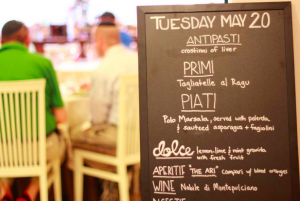 TUESDAY MAY 20
ANTIPASTI
crostini of liver
PRIMI
Tagliatelle al Ragu
PIATI
Pollo Marsala, served with potato
& sauteed asparagus + fagiolini
dolce lemon-lime & mint granita
with fresh fruit
APERITIF "THE ARI" campari w/ blood oranges
WINE Nobile di Montepulciano
DIGESTIF